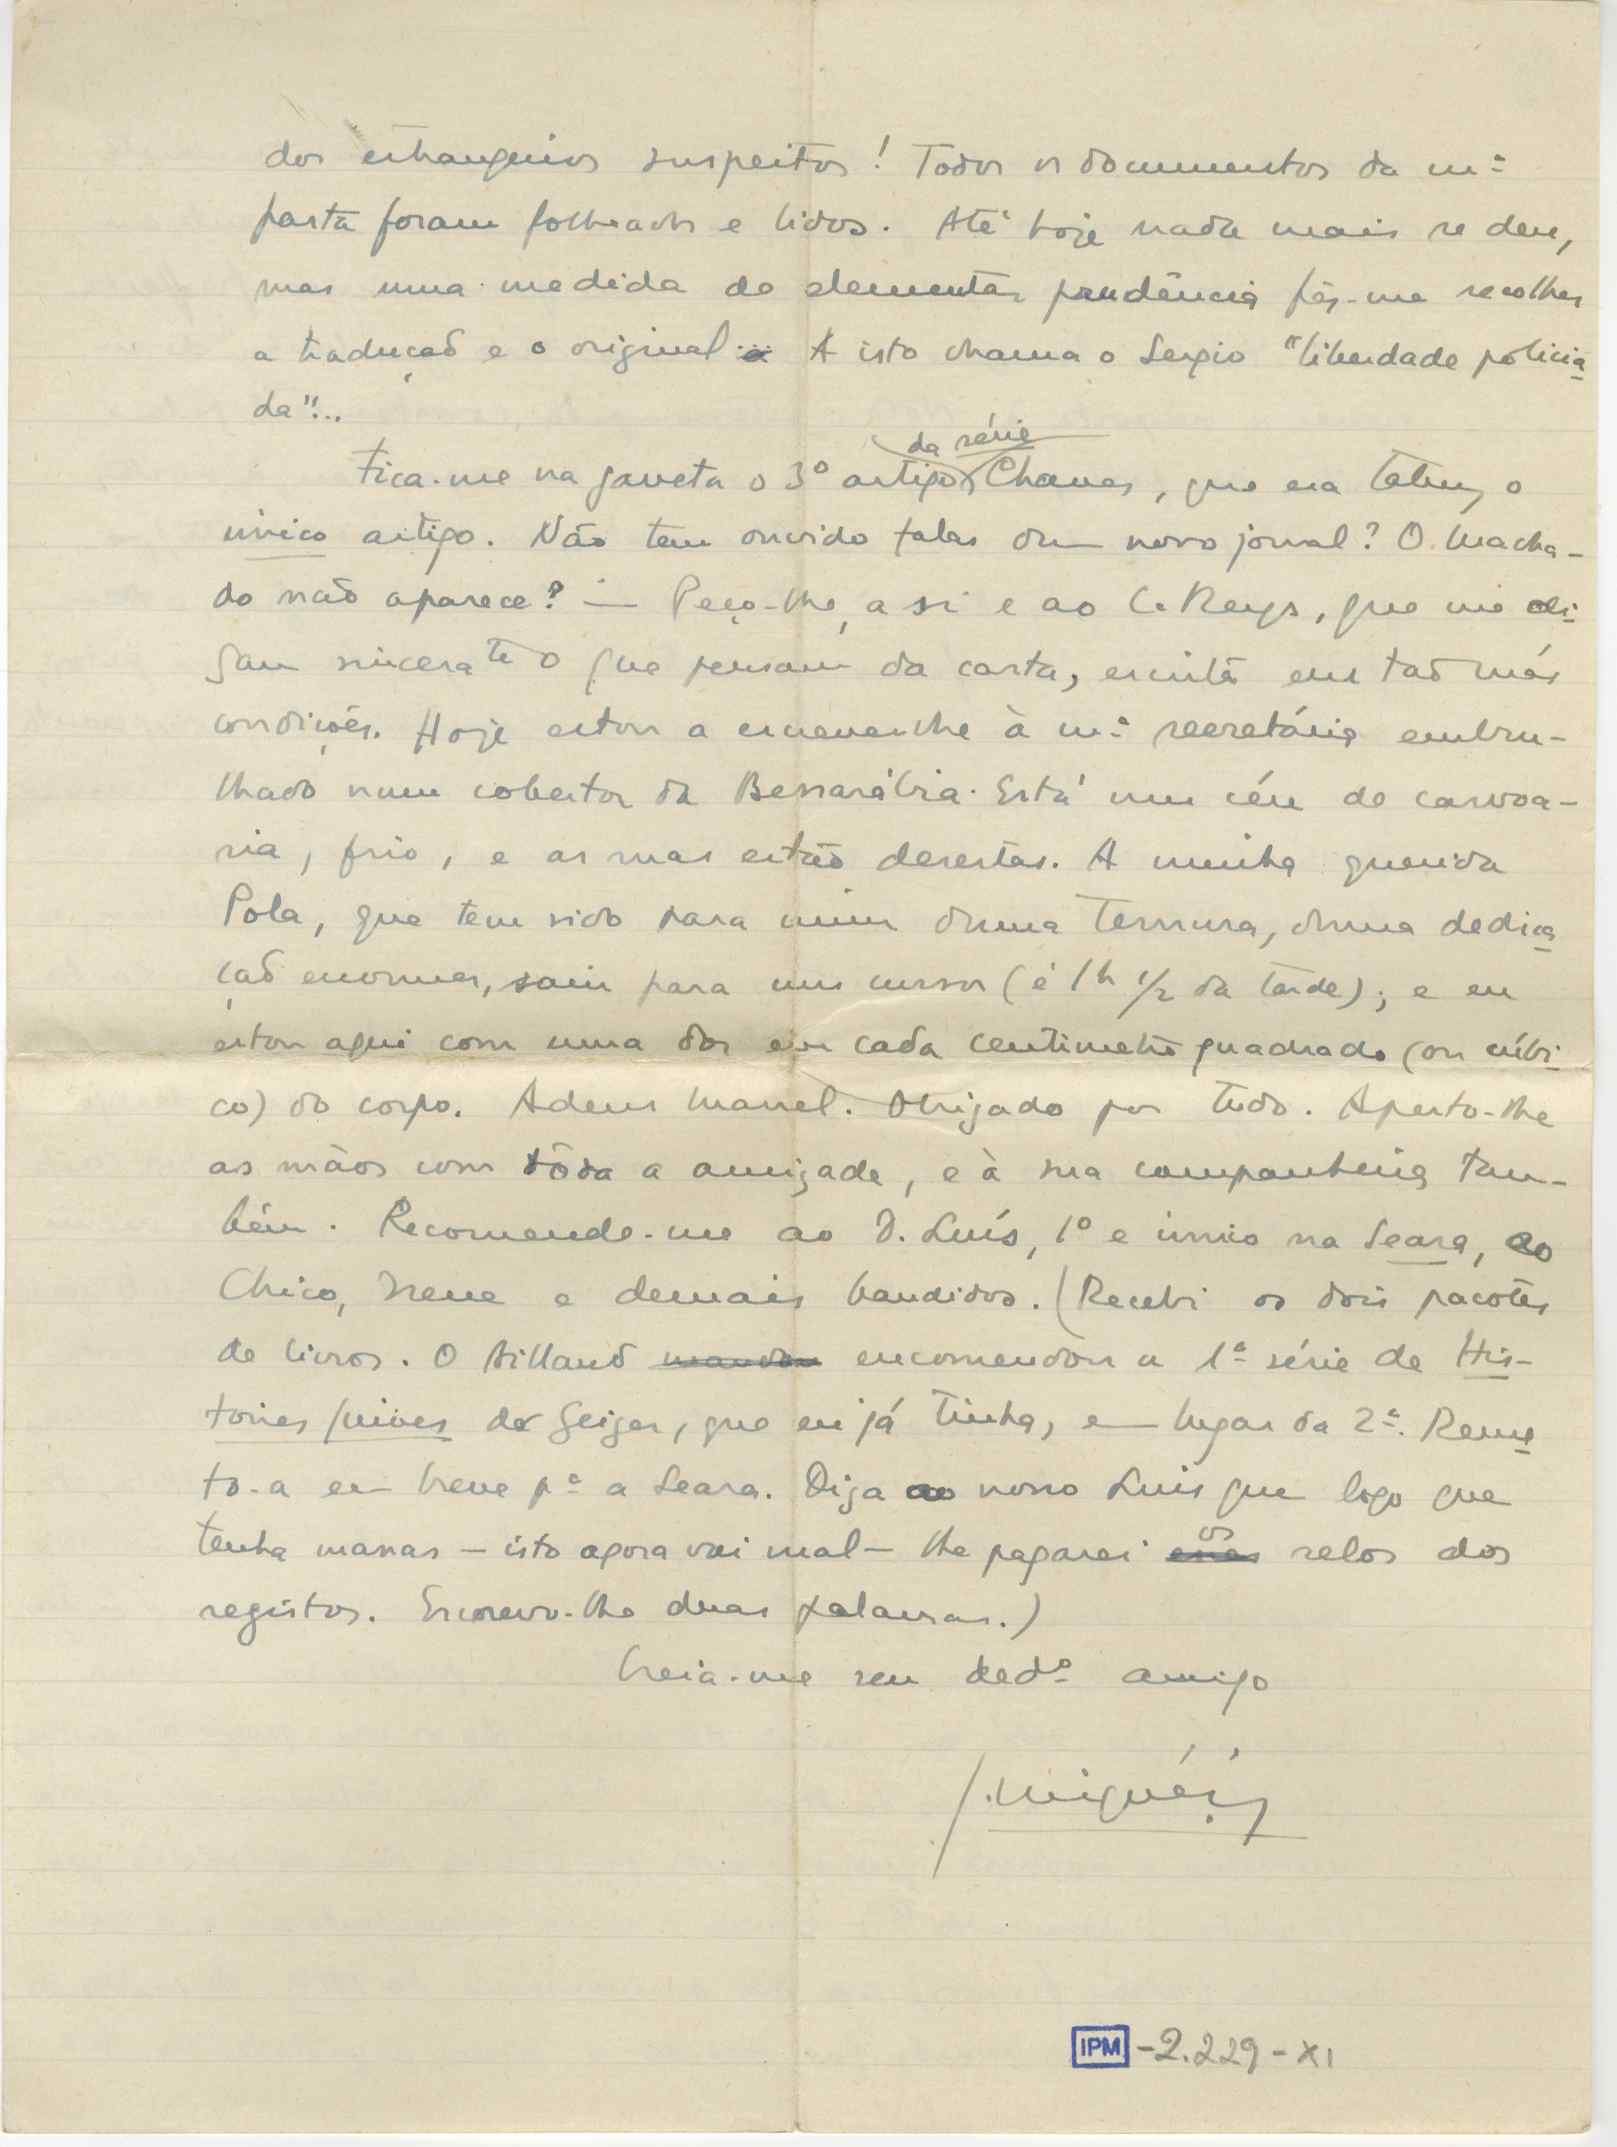 dos estrangeiros suspeitos! Todos os documentos da m.ª
pasta foram folheados e lidos. Até hoje nada mais se deu,
mas uma medida de elementar prudência fêz-me recolher
a tradução e o original. A isto chama o Sergio "liberdade policia
da"...
da série
Fica-me na gaveta o 3º artigo Chaves, que era talvez o
único artigo. Não tem ouvido falar dum novo jornal? O Macha-
do não aparece? — Peço-lhe, a si e ao C. Reys, que me di-
gam sincerate o que pensam da carta, escrita em tão más
condições. Hoje estou a escrever-lhe à m.ª secretária embru-
lhado num cobertor da Bessarábia. Está um céu de carvoa-
ria, frio, e as ruas estão desertas. A minha querida
Pola, que tem sido para mim duma ternura, duma dedica
ção enormes, saiu para um curso (é 1h 1/2 da tarde); e eu
estou aqui com uma dor em cada centimetro quadrado (ou cúbi-
co) do corpo. Adeus Manel. Obrigado por tudo. Aperto-lhe
as mãos com tôda a amizade, e à sua companheira tam-
bém. Recomende-me ao D. Luís, 1º e único na Seara, ao
Chico, Irene e demais bandidos. (Recebi os dois pacotes
de livros. O Aillaud mandou encomendou a 1ª série de His-
toires juives de Geiger, que eu já tinha, em lugar da 2ª. Reme
to-a em breve pª a Seara. Diga ao nosso Luis que logo que
tenha massas — isto agora vai mal — lhe pagarei os selos dos
registos. Escrevo-lhe duas palavras.)
Creia-me seu dedº amigo
J. Miguéis
IPM -2.229-XI